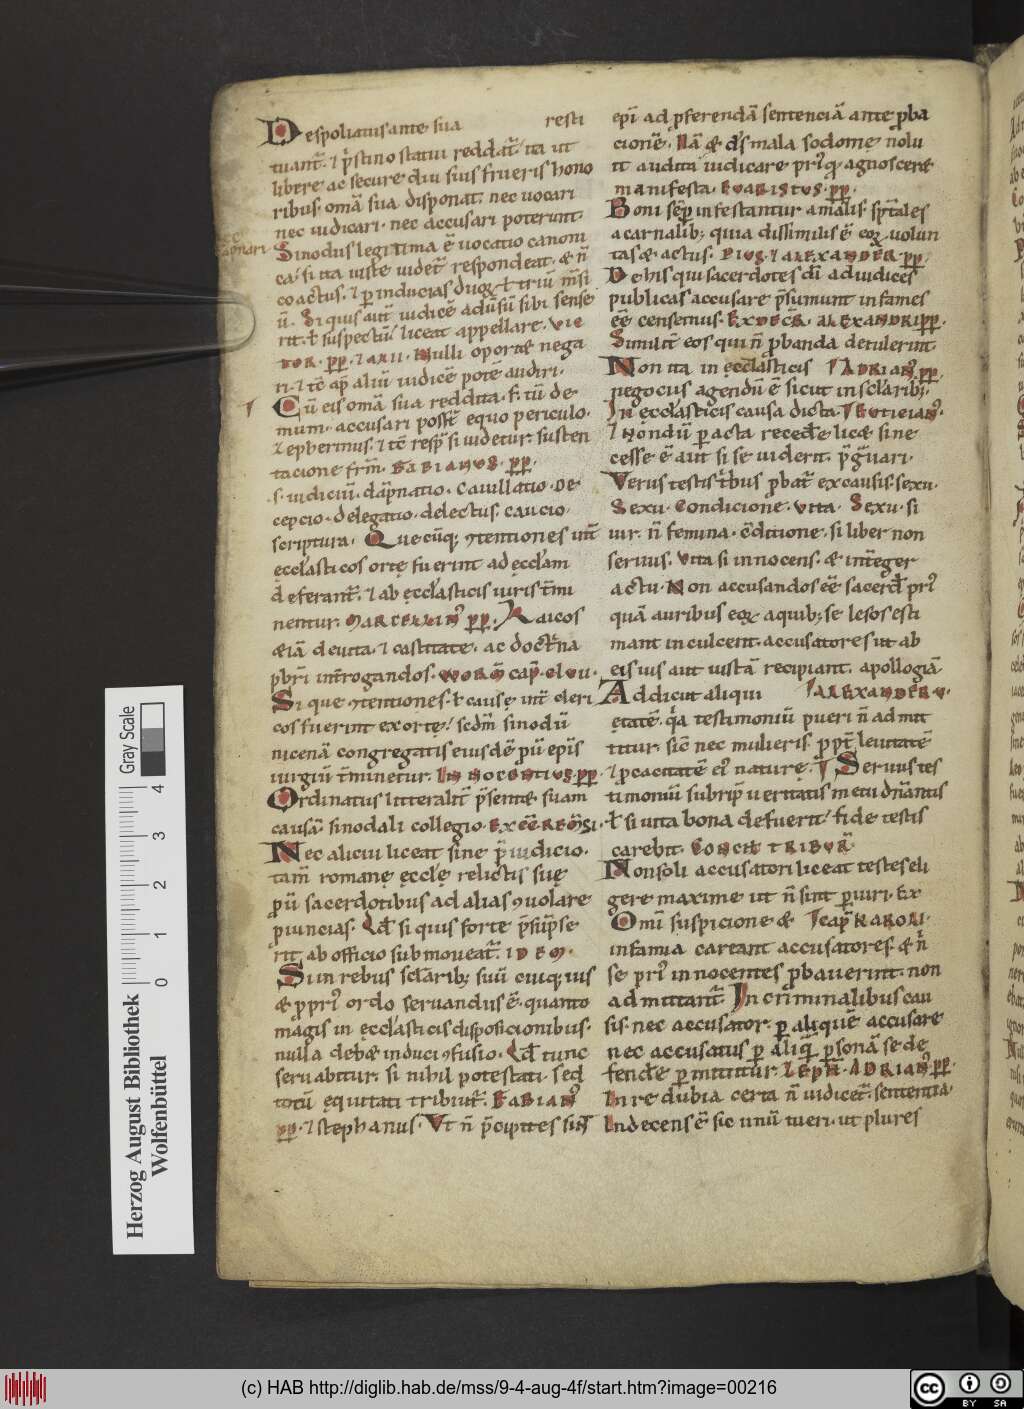 Despoliatus ante sua resti
tuant̃. ⁊ p̃stino statui reddat̃ ita ut
libere ac secure diu suis frueris hono
ribus. omã sua disponat. nec uocari
nec iudicari. nec accusari poterint.
Sinodus legitima ẽ uocatio canoni
ca. si ita iuste uidet̃ respondeat. & ñ
coactus. ⁊ ꝑ inducias
ũ. Si quis aut̃ iudicẽ aduersũ sibi sense
rit. ł suspectũ liceat appellare. VIC
TOR. PP. Nulli oportet nega
ri. ⁊ tc̃ ap̃ aliũ iudicẽ potẽ audiri.
Cũ eis omã sua reddita. f. tũ de
mum. accusari poss̃t equo periculo.
⁊ epherimus. ⁊ tc̃ resp̃ si uidetur susten
tacione fr̃m. FABIANUS. PP.
s. iudiciũ. dãpnatio. Cauillatio. De
cepcio. delegatio. delectus. caucio.
scriptura. Quecũq; ꝯtentiones int̃
ecclasticos ortę fuerint ad ęcclam
deferant̃. ⁊ ab ecclasticis uiris t̃mi
nentur. MARCELLIN9 PP. Laicos
&iã de uita. ⁊ castitate. ac doct̃na
pbr̃i int̃rogandos.
Si que ꝯtentiones. ł causę int̃ cleri
cos fuerint exortę. scd̃m sinodũ
nicenã congregatis eiusdẽ pũ epĩs
iurgiũ t̃minetur. INNOCENTIUS. PP.
Ordinatus litteralit̃ p̃sente suam
causã sinodali collegio.
Nec alicui liceat sine p̃iudicio.
tam̃ romanę ęcclę relictis suę
pũ sacerdotibus ad alias ꝯuolare
ꝓuincias. Qđ si quis forte p̃sũpse
rit ab officio submoueat̃. IDEM.
Si in rebus sclarib; suũ cuiq; ius
& ꝓpri9 ordo seruandus ẽ. quanto
magis in ecclasticis disposicionibus.
nulla debẽ induci ꝯfusio. Qđ tunc
seruabitur. si nihil potestati. sed
totũ ęquitati tribuit̃. FABIAN9
PP. ⁊ stephanus. Vt ñ p̃cipites sint̃
epĩ ad ꝓferendã sentenciã ante ꝓba
cionẽ. Nã & d̃s mala sodome nolu
it audita iudicare pri9q̃ agnoscere
manifesta. EUARISTUS. PP.
Boni semꝑ infestantur a malis. sp̃tales
a carnalib; quia dissimilis ẽ eoꝝ uolun
tas & actus. PIUS. ⁊ ALEXANDẼR. PP.
De his qui sacerdotes dĩ ad iudices
publicas accusare p̃sumunt infames
eẽ censemus. EX DECR̃. ALEXANDRI PP.
Similit̃ eos qui ñ ꝓbanda detulerint.
Non ita in ecclasticis ⁊ ADRIAN9. PP.
negocius agendũ ẽ sicut in sclarib;.
In ecclasticis causa dicta.
⁊ Nondũ ꝑacta recedẽ licẽ sine
cesse ẽ aut si se uiderit. p̃g̃uari.
Verus testis t̃bus ꝓbat̃ ex causis. sexu.
Sexu. Condicione. Vita. Sexu. si
uir. ñ femina. Cõditione. si liber non
seruus. Vita si innocens. & int̃ger
actu. Non accusandos eẽ sacerđ pri9
quã auribus eoꝝ a quib; se lesos esti
mant inculcent. accusatores ut ab
eis ius aut iustã recipiant. apollogiã.
Addicut aliqui ⁊ ALEXANDER V.
ętatẽ. q̃a testimoniũ pueri ñ admit
titur. sic̃ nec mulieris. ꝓpt̃ leuitatẽ
⁊ ꝓcacitatẽ ei9 naturę. ⁊ Seruus tes
timoniũ subrip̃ ueritatis metu dñantis
ł si uita bona defuerit. fide testis
carebit. CONCIL̃ TRIBUR̃
Non soli accusatori liceat testes eli
gere maxime ut ñ sint ꝑiuri. Ex
Omi suspicione & KAROLI.
infamia careant accusatores. & ñ
se pri9 innocentes ꝓbauerint. non
admittant̃. In criminalibus cau
sis. nec accusator. ꝑ aliquẽ accusare
nec accusatus ꝑ aliq̃ ꝑsonã se de
fendẽ ꝑmittitur. ADRIAN9 PP.
In re dubia certa ñ iudicet̃. sententia.
Indecens ẽ sic unũ tueri. ut plures
Herzog August Bibliothek
Wolfenbüttel
Gray Scale
0 1 2 3 4
(c) HAB http://diglib.hab.de/mss/9-4-aug-4f/start.htm?image=00216
cc BY SA